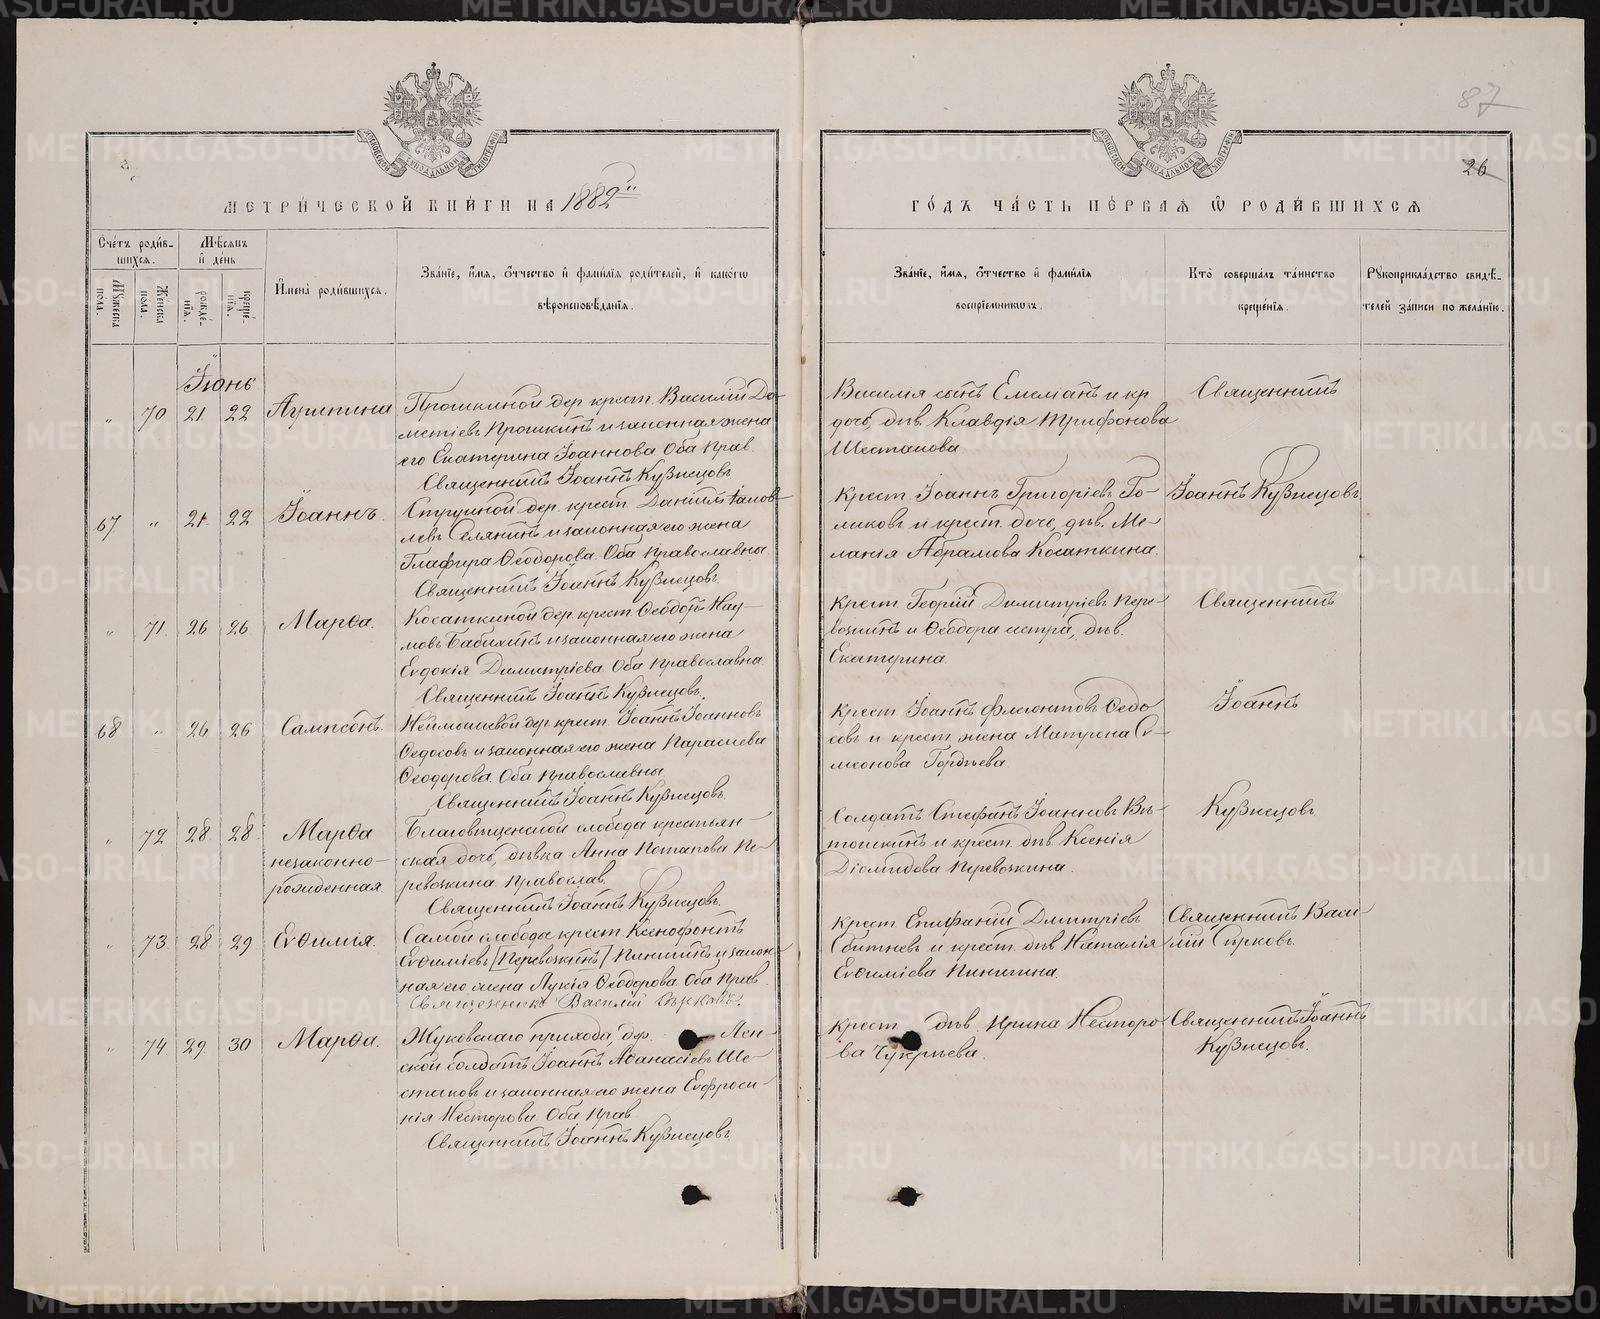 87
26
МЕТРИЧЕСКОЙ КНИГИ НА 1882й
ГОДЪ ЧАСТЬ ПЕРВАЯ Ѡ РОДИВШИХСЯ
Счетъ родившихся.
Мужеска пола.
Женска пола.
Мѣсяцъ и день
рожденія.
крещенія.
Имена родившихся.
Званіе, имя, отчество и фамилія родителей, и какогѡ
вѣроисповѣданія.
Званіе, имя, отчество и фамилія
воспріемниковъ.
Кто совершалъ таинство
крещенія.
Рукоприкладство свидѣ-
телей записи по желанію.
Іюнь
" 70 21 22 Агриппина
Прошкиной дер. крест. Василій До-
метіевъ Прошкинъ и законная жена
его Екатерина Іоаннова Оба Прав
Священникъ Іоаннъ Кузнецовъ
Василія сынъ Емеліанъ и кр
дочь, дѣв. Клавдія Трифонова
Шестакова
Священникъ
67 " 21 22 Іоаннъ.
дер. крест. Даніилъ Іаков-
левъ Селянинъ и законная его жена
Глафира Ѳеодорова. Оба православны
Священникъ Іоаннъ Кузнецовъ.
Крест. Іоаннъ Григоріевъ Го-
ликовъ и крест. дочь, дѣв. Ме-
ланія Абрамова Косаткина.
Іоаннъ Кузнецовъ
" 71 26 26 Марѳа.
Косаткиной дер. крест. Ѳеодоръ Нау-
мовъ Бабихинъ и законная его жена
Евдокія Димитріева. Оба православна
Священникъ Іоаннъ Кузнецовъ.
Крест. Георгій Димитріевъ Пере-
возкинъ и Ѳеодора сестра, дѣв.
Екатерина.
Священникъ
68 " 26 26 Сампсонъ.
дер. крест. Іоаннъ Іоанновъ
Ѳедосовъ и законная его жена Параскева
Ѳеодорова. Оба православны
Священникъ Іоаннъ Кузнецовъ.
Крест. Іоаннъ Флегонтовъ Ѳедо-
совъ и крест. жена Матрона Си-
меонова Гордѣева
Іоаннъ
" 72 28 28 Марѳа
незаконно-
рожденная.
Благовѣщенской слободы крестьян-
ская дочь, дѣвка Анна Потапова Пе-
ревозкина православ.
Священникъ Іоаннъ Кузнецовъ.
Солдатъ Стефанъ Іоанновъ Вя-
ткинъ и крест. дѣв. Ксенія
Діомидова Перевозкина.
Кузнецовъ
" 73 28 29 Евѳимія.
Самой слободы крест. Ксенофонтъ
Евѳиміевъ [Перевозкинъ] Пинигинъ и закон-
ная его жена Лукія Ѳеодорова. Оба Прав
Священникъ Василій Сырковъ.
Крест. Епифаній Дмитріевъ
Сбитневъ и крест. дѣв. Наталія
Евѳиміева Пинигина.
Священникъ Васи-
лій Сырковъ.
" 74 29 30 Марѳа.
Жуковскаго прихода, дер. Лен-
ской солдатъ Іоаннъ Аѳанасіевъ Ше-
стаковъ и законная его жена Евфроси-
нія Несторова. Оба Прав
Священникъ Іоаннъ Кузнецовъ.
Крест. дѣв. Ирина Несторо-
ва Чукреева.
Священникъ Іоаннъ
Кузнецовъ.
METRIKI.GASO-URAL.RU